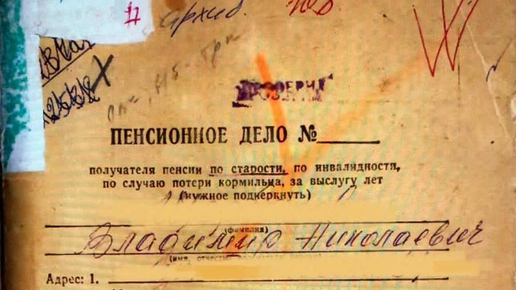 архив.
ПРОВЕРИЛ
ПЕНСИОННОЕ ДЕЛО №
получателя пенсии по старости, по инвалидности,
по случаю потери кормильца, за выслугу лет
(нужное подчеркнуть)
(фамилия)
Владимир Николаевич
Адрес: 1.